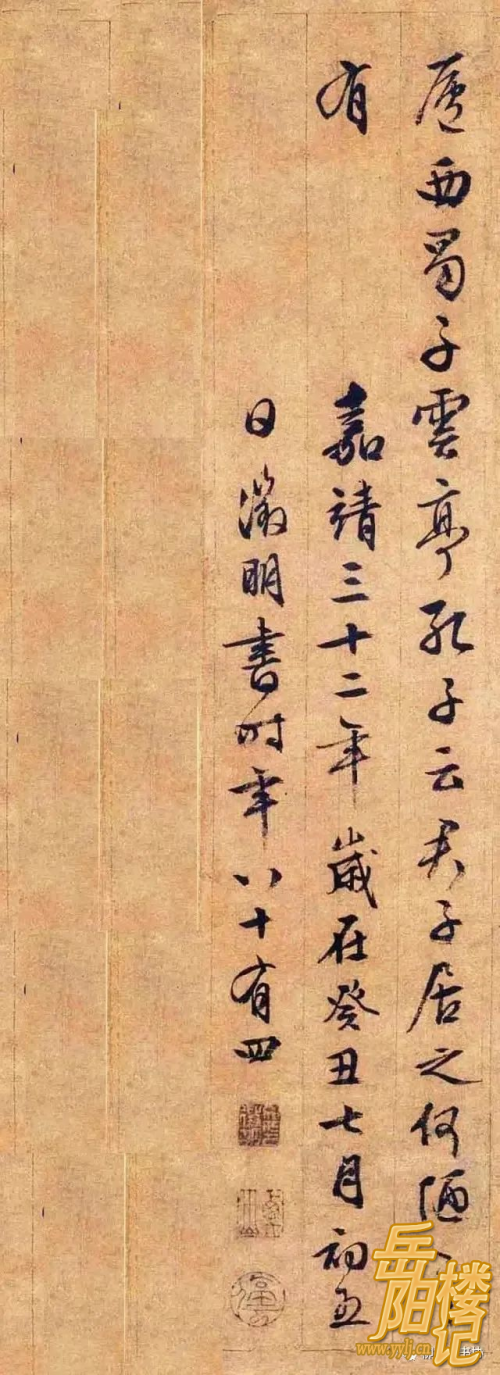 廬西蜀子雲亭孔子云君子居之何陋
有
嘉靖三十二年歲在癸丑七月初五
日徵明書时年八十有四
岳阳楼记
www.yylj.cn